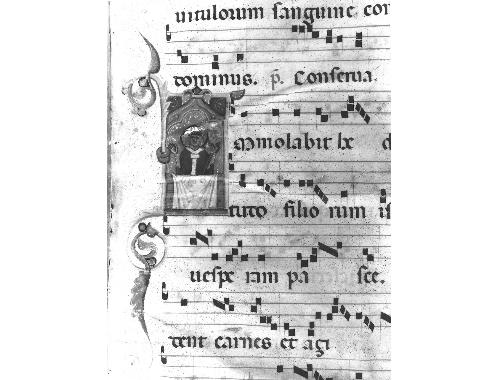 uitulorum sanguine con
dominus. p̄. Conserua.
mmolabit hę
tudo filiorum is
uespe ram pa sce.
dent carnes et azi